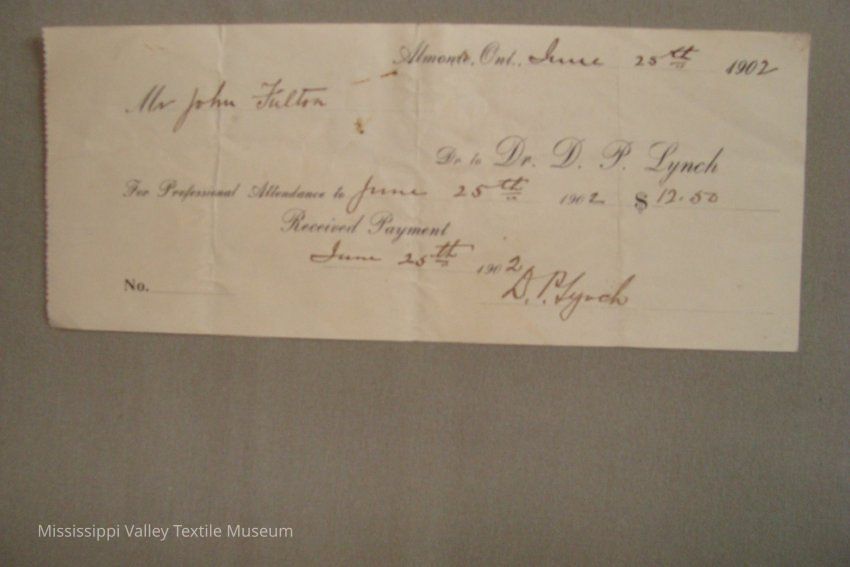 Almonte, Ont., June 25th 1902
Mr John Fulton
Dr. to Dr. D. P. Lynch
For Professional Attendance to June 25th 1902 $ 12.50
Received Payment
June 25th 1902
D. P. Lynch
No.
Mississippi Valley Textile Museum